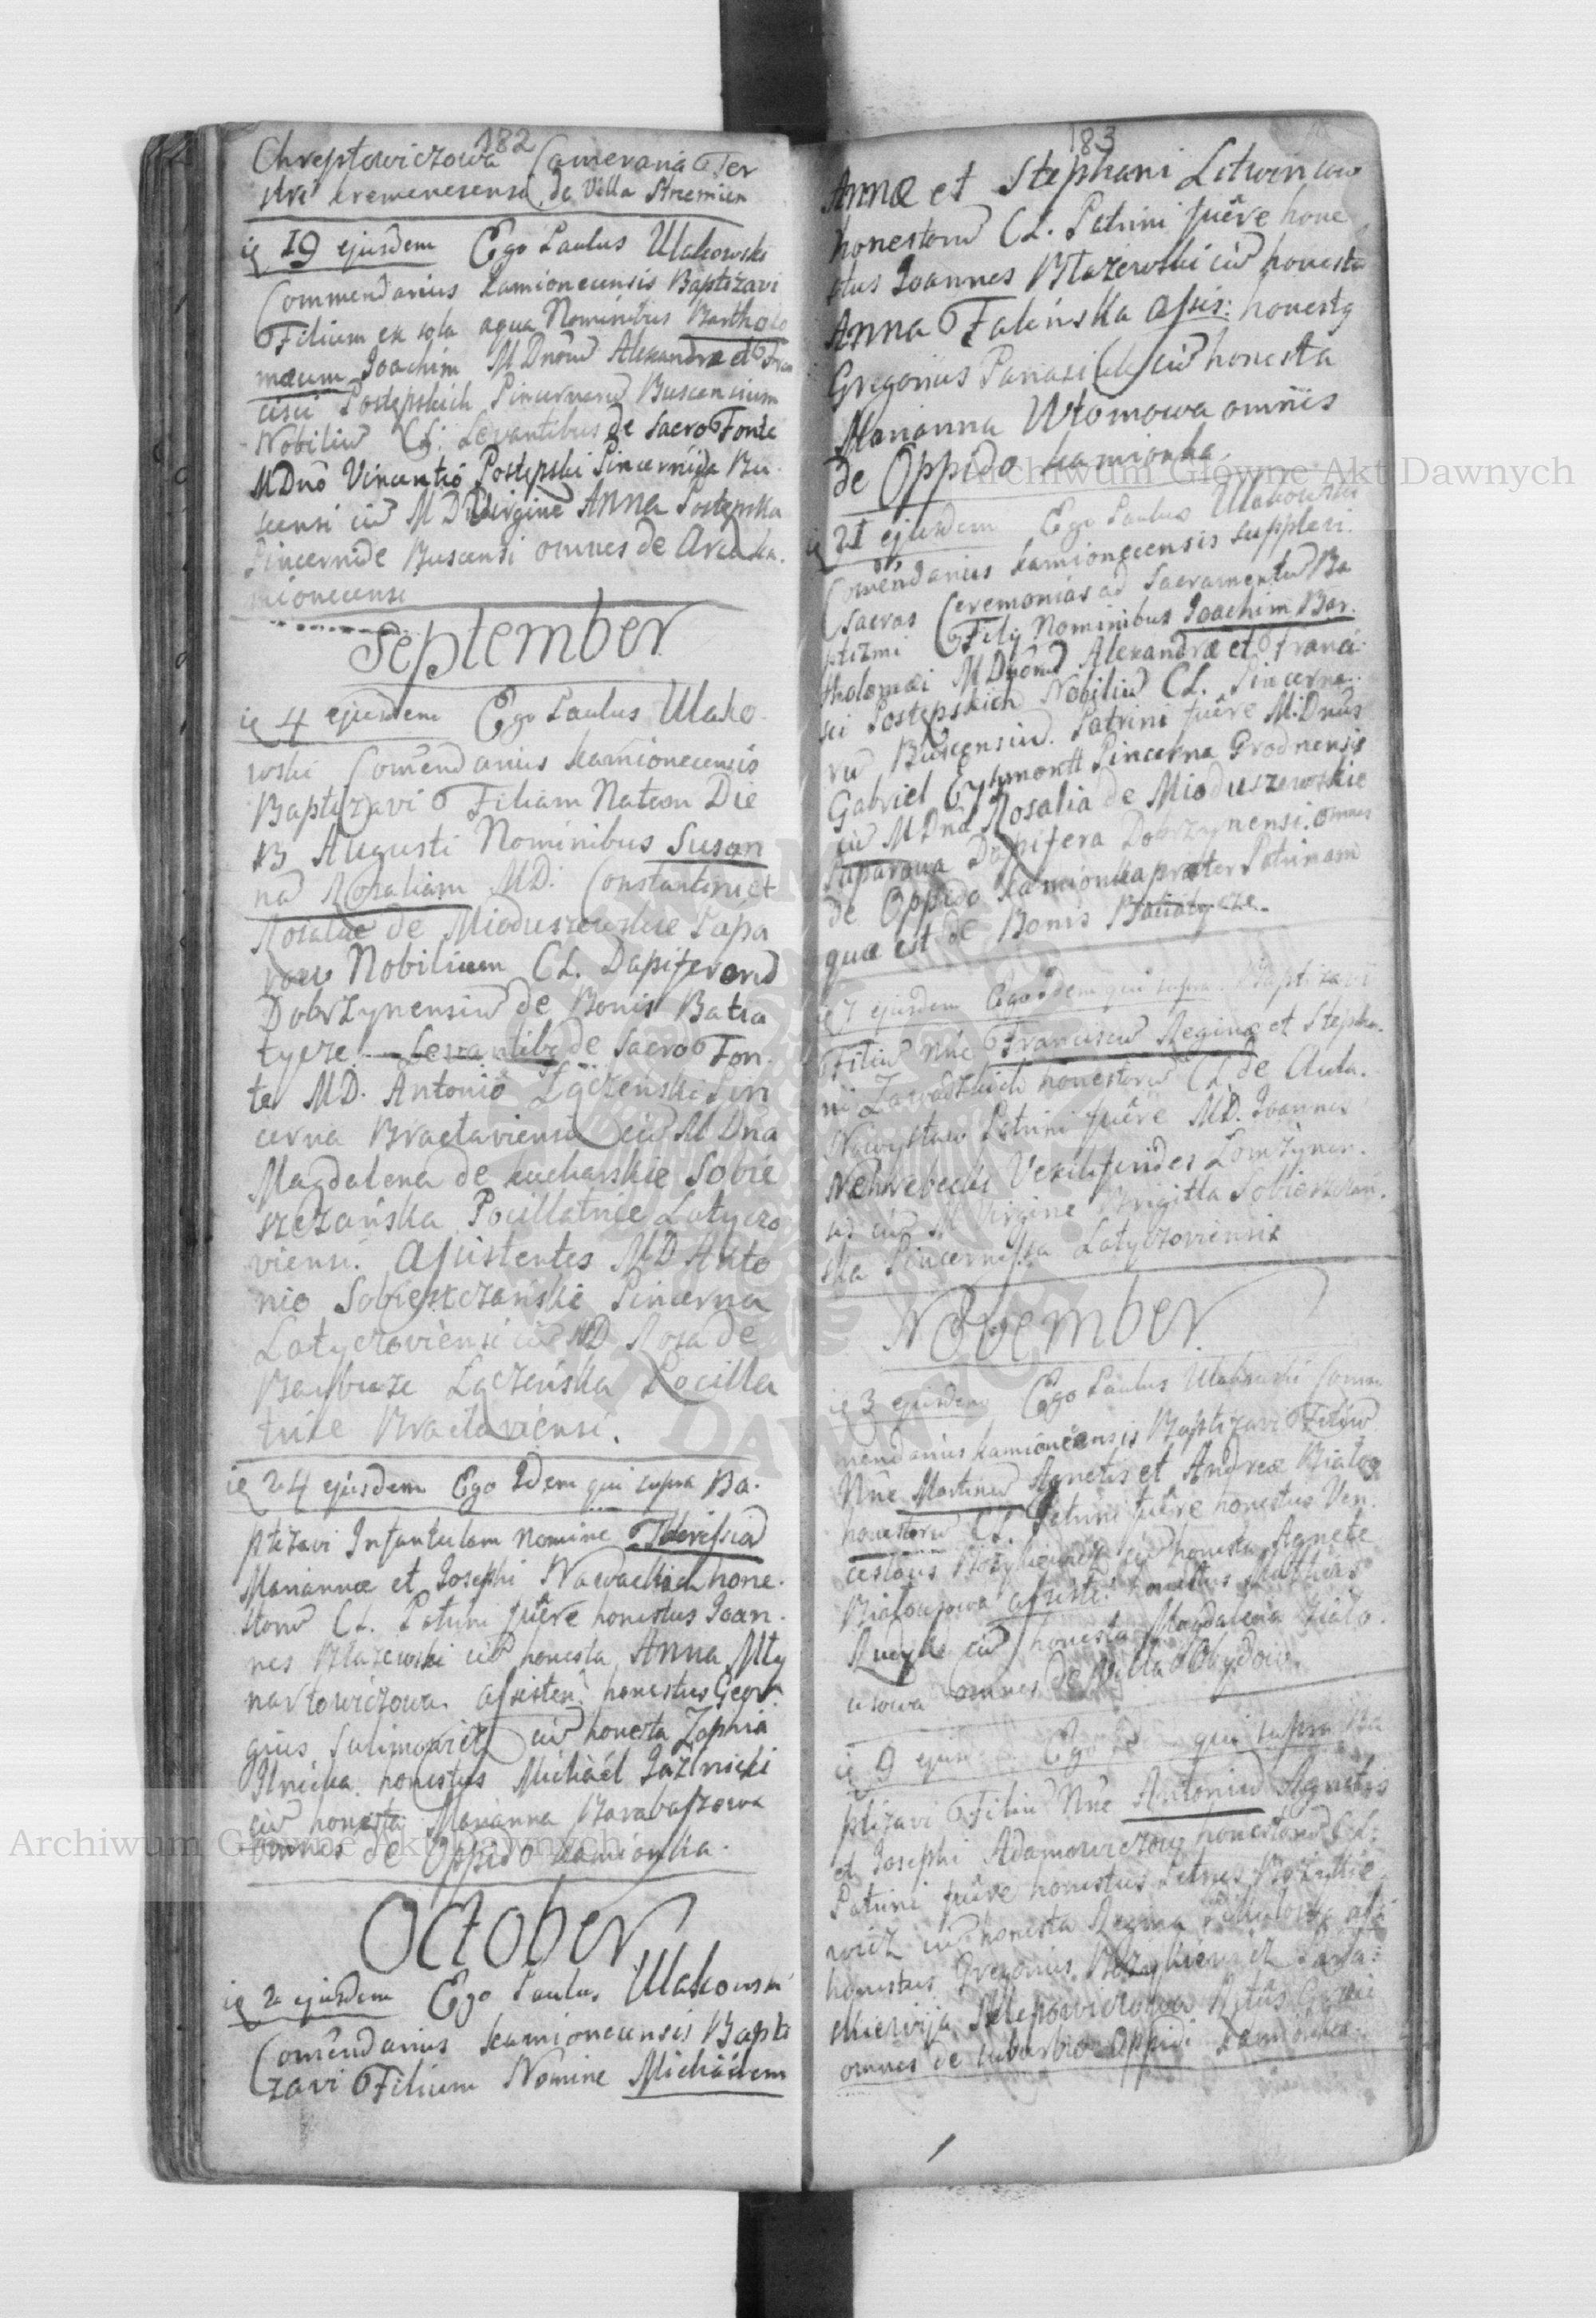 182
Chreptowiczowa Cameraria Ter
stre kremenecensi de Villa Strzemien
ie 19 ejusdem Ego Paulus Ulakowski
Commendarius Kamionecensis Baptizavi
Filium ex sola aqua Nominibus Bartholo
mæum Joachim MDnorū Alexandræ et Fran
cisci Postępskich Pincernarū Buscensium
Nobiliū CL. Levantibus de Sacro Fonte
MDnō Vincentio Postępski Pincernida Bu
scensi cū MD Virgine Anna Postępska
Pincernide Buscensi omnes de Arce Ka.
mionecensi
September
ie 4 ejusdem Ego Paulus Ulako
wski Comēndarius Kamionecensis
Baptizavi Filiam Natam Die
Augusti Nominibus Susan
nā Rosaliam MD. Constantini et
Rosaliæ de Mioduszewskie Papa
row Nobilium CL. Dapiferorū
Dobrzynensiū de Bonis Batia
tycze Levantibus de Sacro Fon.
te MD. Antonio Łączeński Pin
cerna Braclaviensi cū MDna
Magdalena de kucharskie Sobie
szczańska Pocillatrice Latyczo
viensi. Assistentes MD Anto
nio Sobieszczański Pincerna
Latyczoviensi cū MD Rosa de
Łączeńska Pocilla
trice Braclaviensi.
ie 24 ejusdem Ego Idem qui supra Ba.
ptizavi Infantulam nomine Theressiā
Mariannæ et Josephi hone.
storū CL. Patrini fuêre honestus Joan.
nes Błazewski cū honesta Anna Mły
nartowiczowa. Assisten: honestus Geor
gius Sulimowicz cū honesta Zophia
Ilnicka honestus Michaël Jazłnicki
cū honesta Marianna Barabaszowa
omnes de Oppido Kamionka.
October
ie 2 ejusdem Ego Paulus Ulakowski
Comēndarius Kamionecensis Bapti
zavi Filium Nomine Michaëlem
183
Annæ et Stephani Litwinow
honestorū CL. Patrini fuêre hone
stus Joannes Błazewski cū honesta
Anna Falińska Assis: honestq
Gregorius cū honesta
Marianna Utomowa omnes
de Oppido Kamionka.
ie 21 ejusdem Ego Paulus Ulakowski
Comēndarius Kamionecensis supplevi
Sacras Ceremonias ad Sacramentū Ba
ptizmi Filij Nominibus Joachim Bar.
tholomæi MDnorū Alexandræ et Franci
sci Postępskich Nobiliū CL. Pincerna.
rū Buscensiū. Patrini fuêre M.Dnus
Gabriel Eysmontt Pincerna Grodnensis
cū MDnā Rosalia de Mioduszewskie
Paparowa Dapifera Dobrzynensi. omnes
de Oppido Kamionka præter Patrinam
quæ est de Bonis Batiatycze.
ie 7 ejusdem Ego Idem qui supra. Baptizavi
Filiū Nne Franciscū Reginæ et Stepha.
ni Zawadzkich honestorū CL. de Aula.
Patrini fuêre MD. Joannes
Nehrebecki Vexiliferides Łomzynen.
sis cū M Virgine Brigitta Sobieszczań.
ska Pincernissa Latyczoviensis
November
ie 3 ejusdem Ego Paulus Ulakowski Com
mendarius Kamionecensis Baptizavi Filiū
Nne Martinū Agnetis et Andreæ
honestorū CL. Patrini fuêre honestus Ven.
ceslaus cū honesta Agnete
assiste: honestus Mathias
cū honesta Magdalena Biało.
omnes de Villa Obydow.
ie 9 ejus Ego qui supra Ba
ptizavi Filiū Nne Antoniū Agnetis
et Josephi Adamowiczow honestorū CL.
Patrini fuêre honestus Petrus
wicz cū honesta Regina
honestus Gregorius
Ritus Græci
omnes de suburbio Oppidi Kamionka.
Archiwum Główne Akt Dawnych
Archiwum Główne Akt Dawnych